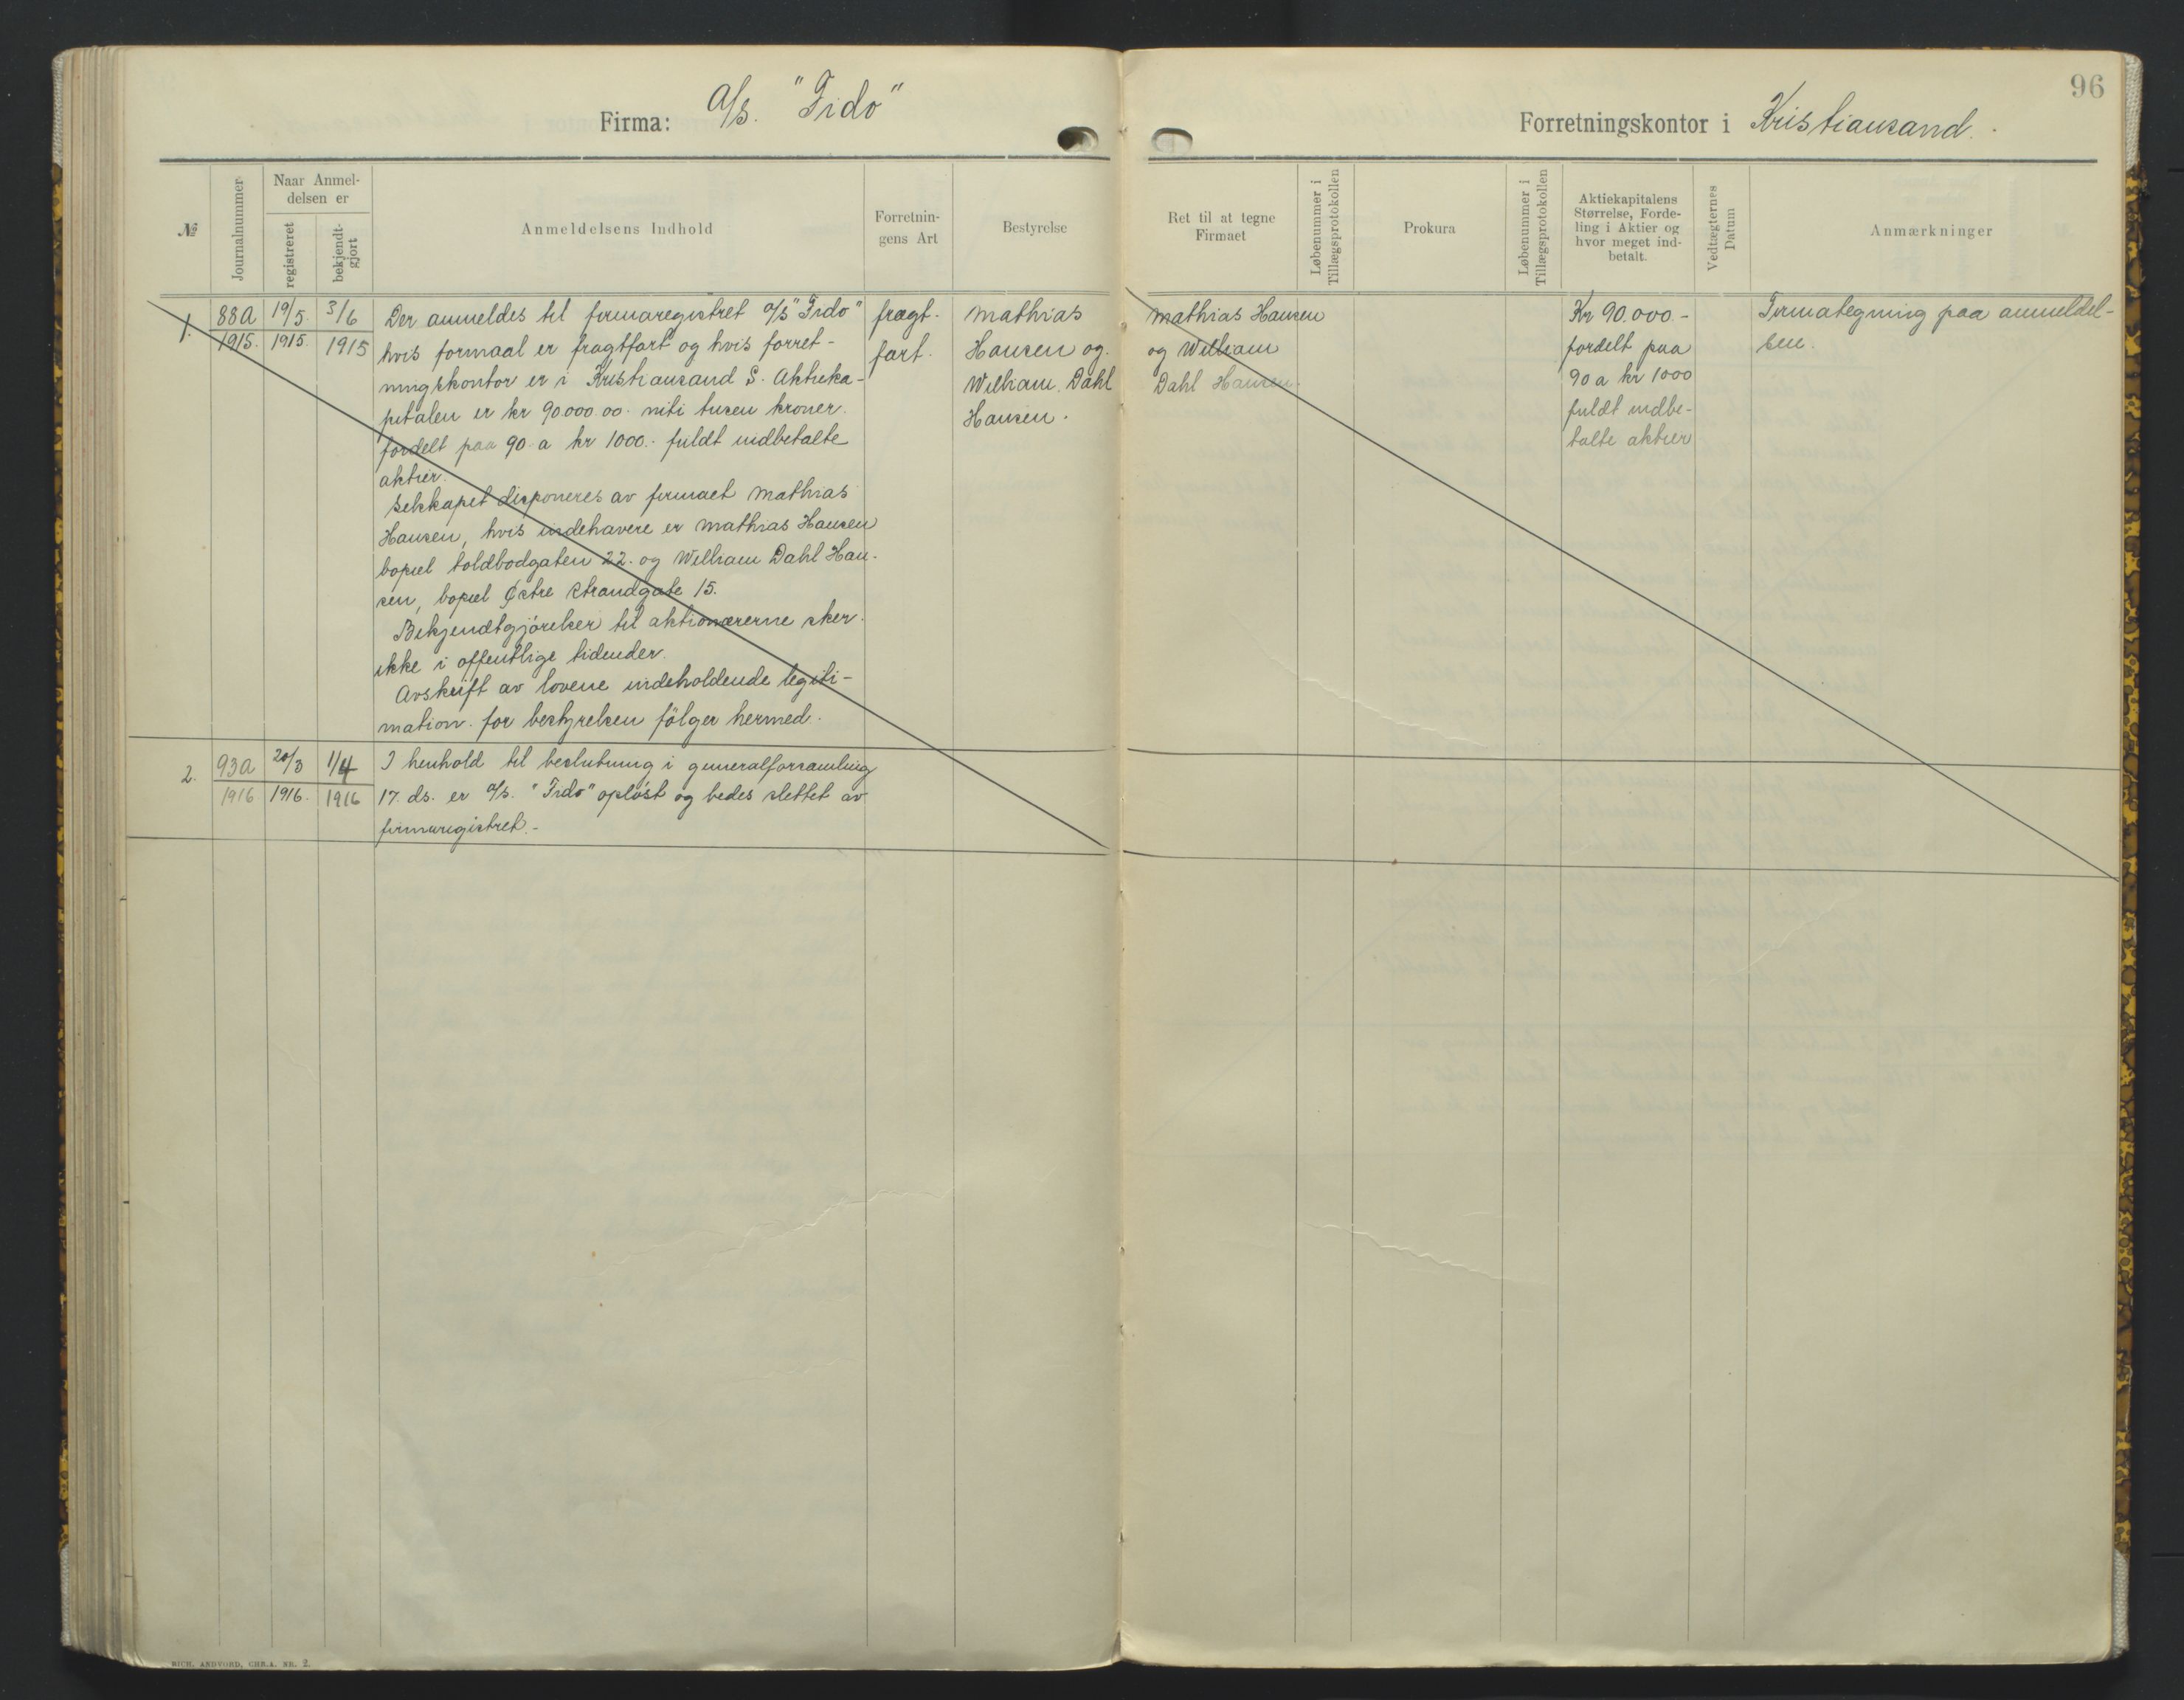 96
Firma: A/S. "Fido"
Forretningskontor i Kristiansand.
№
Journalnummer
Naar Anmel-
delsen er
registreret
bekjendt-
gjort
Anmeldelsens Indhold
Forretnin-
gens Art
Bestyrelse
Ret til at tegne
Firmaet
Løbenummer i
Tillægsprotokollen
Prokura
Løbenummer i
Tillægsprotokollen
Aktiekapitalens
Størrelse, Forde-
ling i Aktier og
hvor meget ind-
betalt.
Vedtægternes
Datum
Anmærkninger
1.
88a
1915.
19/5
1915.
3/6
1915
Der anmeldes til firmaregistret a/s "Fido"
hvis formaal er fragtfart og hvis forret-
ningskontor er i Kristiansand S. Aktieka-
pitalen er kr 90.000.00. niti tusen kroner.
fordelt paa 90. a kr 1000.- fuldt indbetalte
aktier.
Selskapet disponeres av firmaet Mathias
Hansen, hvis indehavere er Mathias Hansen
bopæl toldbodgaten 22. og William Dahl Han-
sen, bopæl Østre Strandgate 15.
Bekjendtgjörelser til aktionærerne sker
ikke i offentlige tidender.
Avskrift av lovene indeholdende legiti-
mation for bestyrelsen fölger hermed.
fragt-
fart.
Mathias
Hansen og.
William Dahl
Hansen.
Mathias Hansen
og William
Dahl Hansen.
Kr 90.000.-
fordelt paa
90 a kr 1000
fuldt indbe-
talte aktier
Firmategning paa anmeldel-
sen.
2.
93a
1916
20/3
1916.
1/4
1916
I henhold til beslutning i generalforsamling
17. ds. er a/s. "Fido" oplöst og bedes slettet av
firmaregistret.-
RICH. ANDVORD, CHR.A. NR. 2.